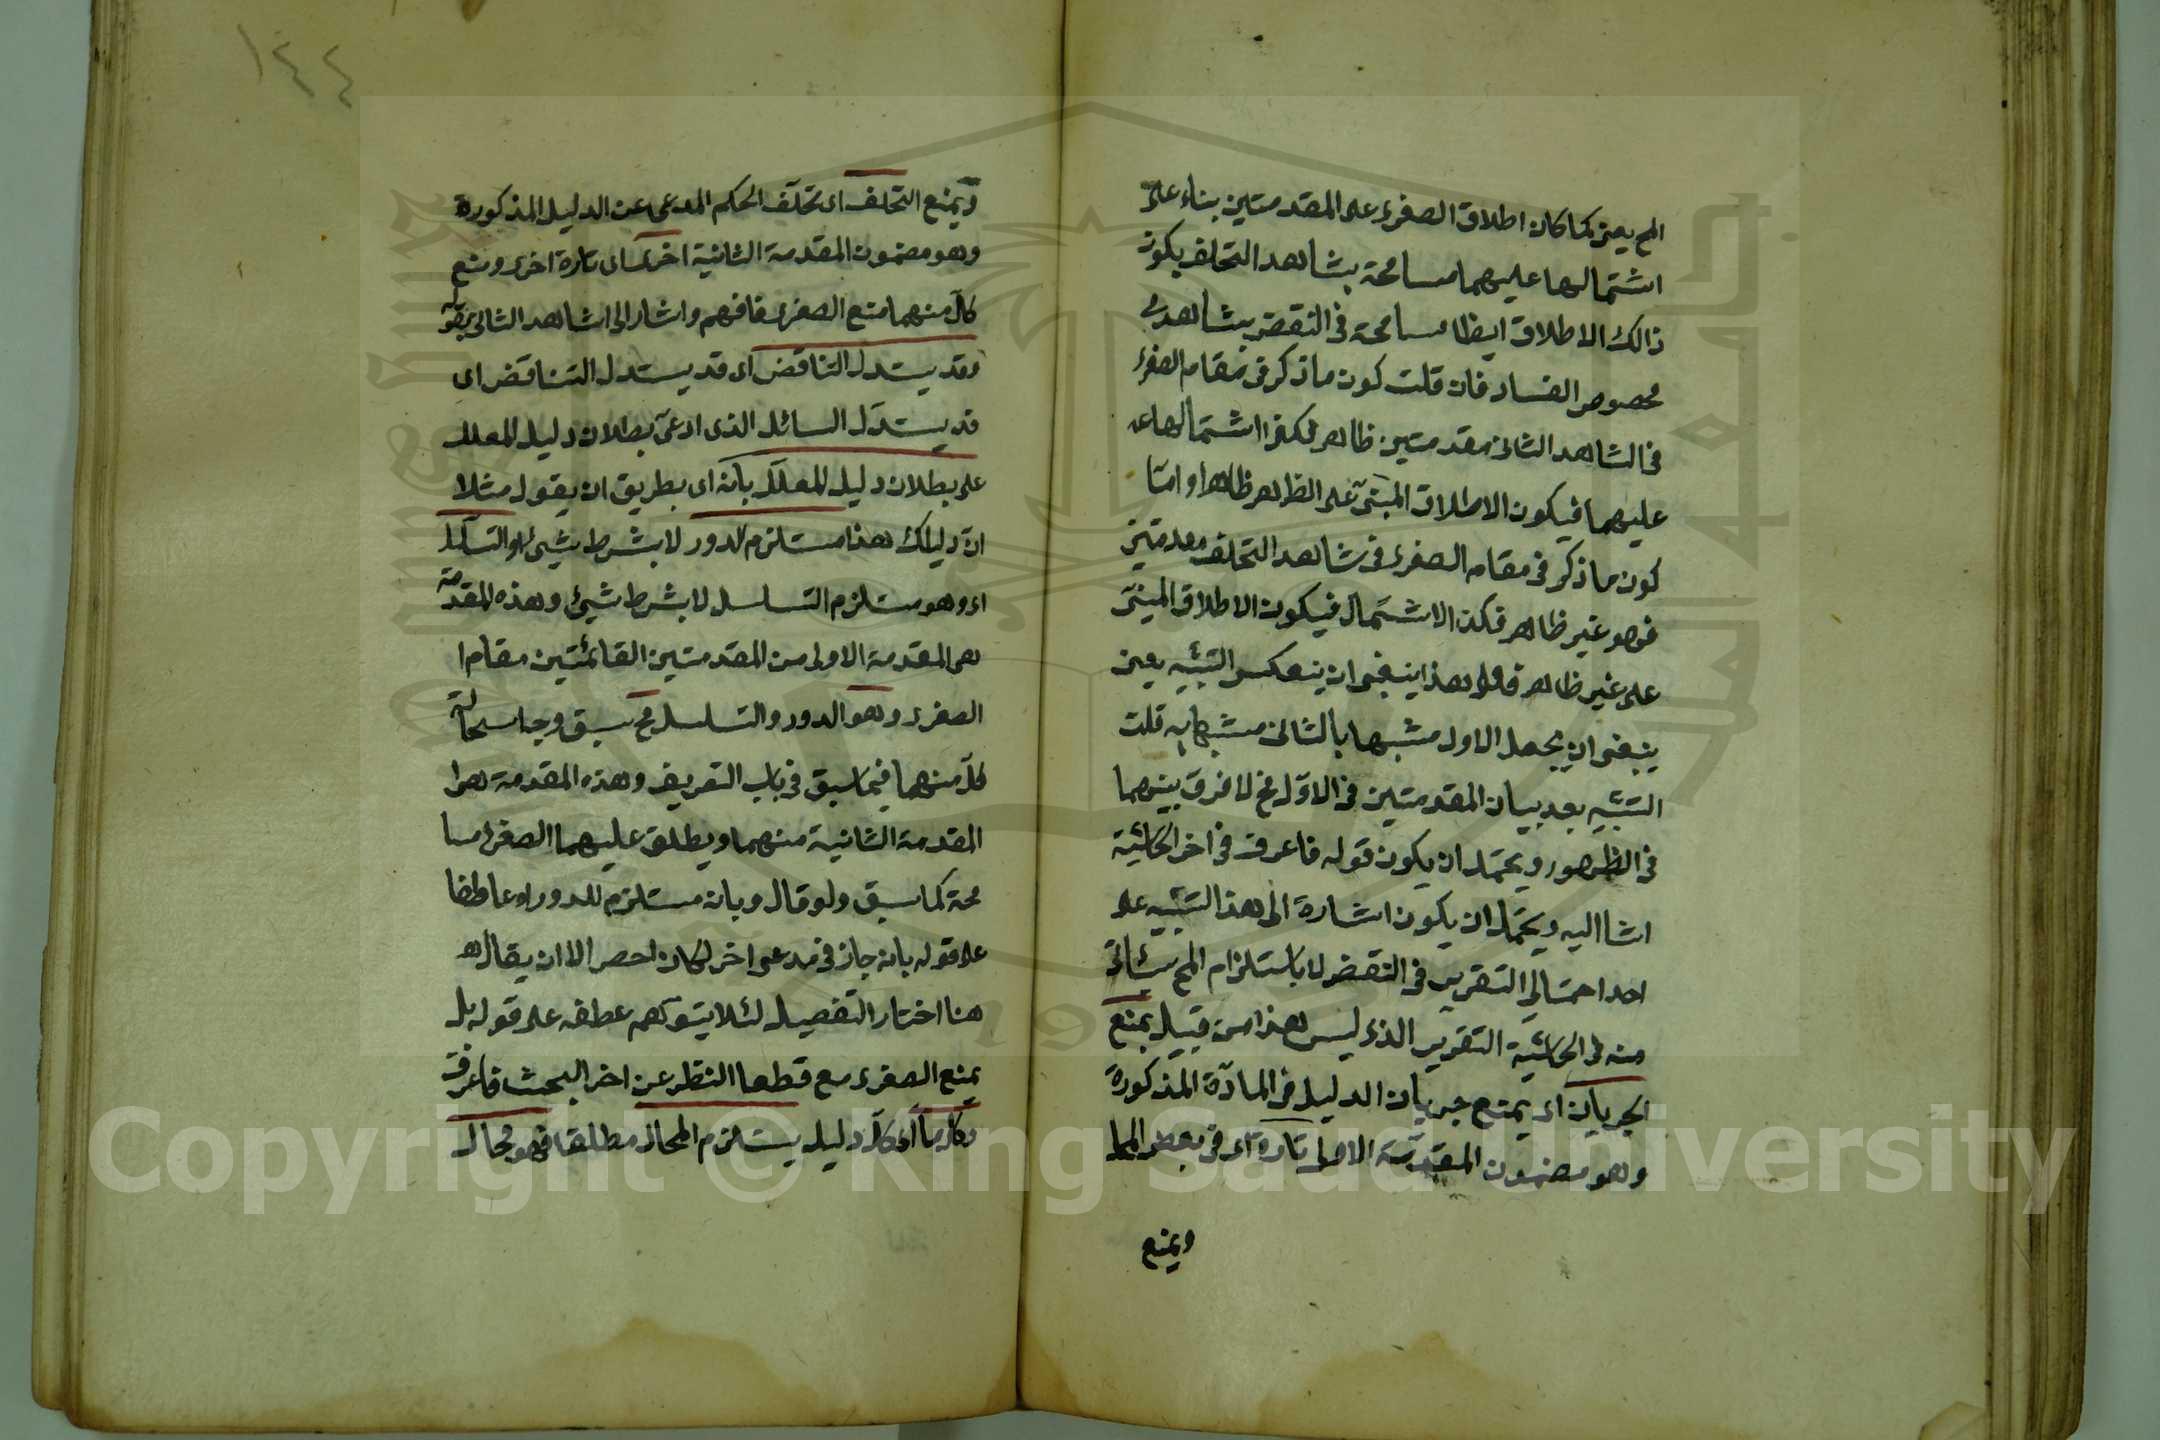 المح يعنى كما كان اطلاق الصغرى على المقدمتين بناء على
اشتمالها عليهما مسامحة بشاهد التخلف يكون
ذالك الاطلاق ايضا مسامحة فى النقض بشاهد
مخصوص الفساد فان قلت كون ما ذكر فى مقام الصغرى
فى الشاهد الثانى مقدمتين ظاهر لكن اشتمالها
عليهما فيكون الاطلاق المبنى على الظاهر ظاهرا واما
كون ما ذكر فى مقام الصغرى فى شاهد التخلف مقدمتين
فهو غير ظاهر فكذا الاشتمال فيكون الاطلاق المبنى
على غير ظاهر فعلى هذا ينبغى ان ينعكس التشبيه يعنى
ينبغى ان يجعل الاول مشبها بالثانى مشبها به قلت
التشبيه بعد بيان المقدمتين فى الاول فح لا فرق بينهما
فى الظهور ويحتمل ان يكون قوله فاعرف فى اخر الحاشية
اشا اليه ويحتمل ان يكون اشارة الى هذا التشبيه على
احد احتمالى التقرير فى النقض لا باستلزام المح
منه الحاشية التقرير الذى ليس هذا من قبيل يمنع
الجريان اى يمتنع جريان الدليل فى المادة المذكورة
وهو مضمون المقدمة الاولى تارة اى فى بعض
ويمنع
١٤٤
ويمنع التخلف اى تخلف الحكم المدعى عن الدليل المذكورة
وهو مضمون المقدمة الثانية اخرى اى تارة اخرى ومنع
كل منهما منع الصغرى فافهم واشار الى الشاهد الثانى بقوله
وقد يستدل الناقض اى قد يستدل الناقض اى
قد يستدل السائل الذى ادعى بطلان دليل المعلل
على بطلان دليل المعلل بانه اى بطريق ان يقول مثلا
ان دليلك هذا مستلزم للدور لا بشرط شيئ او التسلسل
اى وهو مستلزم التسلسل لا بشرط شيئ وهذه المقدمة
هى المقدمة الاولى من المقدمتين القائمتين مقام ا
الصغرى وهو الدور والتسلسل مح سبق وجه استحالة
كل منهما فيما سبق فى باب التعريف وهذه المقدمة هى ا
المقدمة الثانية منهما ويطلق عليهما الصغرى مسا
محة كما سبق ولو قال وبانه مستلزم للدور اه عاطفا
على قوله بانه جاز فى مدعى اخر لكان احصر الا ان يقال ه
هنا اختار التفصيل لئلا يتوهم عطفه على قوله بل
يمنع الصغرى مع قطعا النظر عن اخر البحث فاعرف
وكل ما اى كل دليل يستلزم المحال مطلقا فهو محال
Copyright © King Saud University